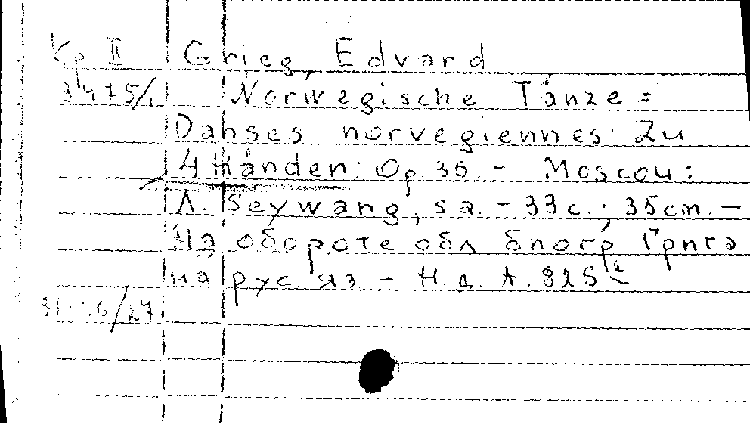 Кр II Grieg, Edvard
3475/1 Norwegische Tänze =
Danses norvegiennes: Zu
4 Händen: Op 35. - Moscou:
A. Seywang, s.a. - 33 с.; 35 cm. -
На обороте обл биогр Грига
на рус яз - Н. д. А. 825